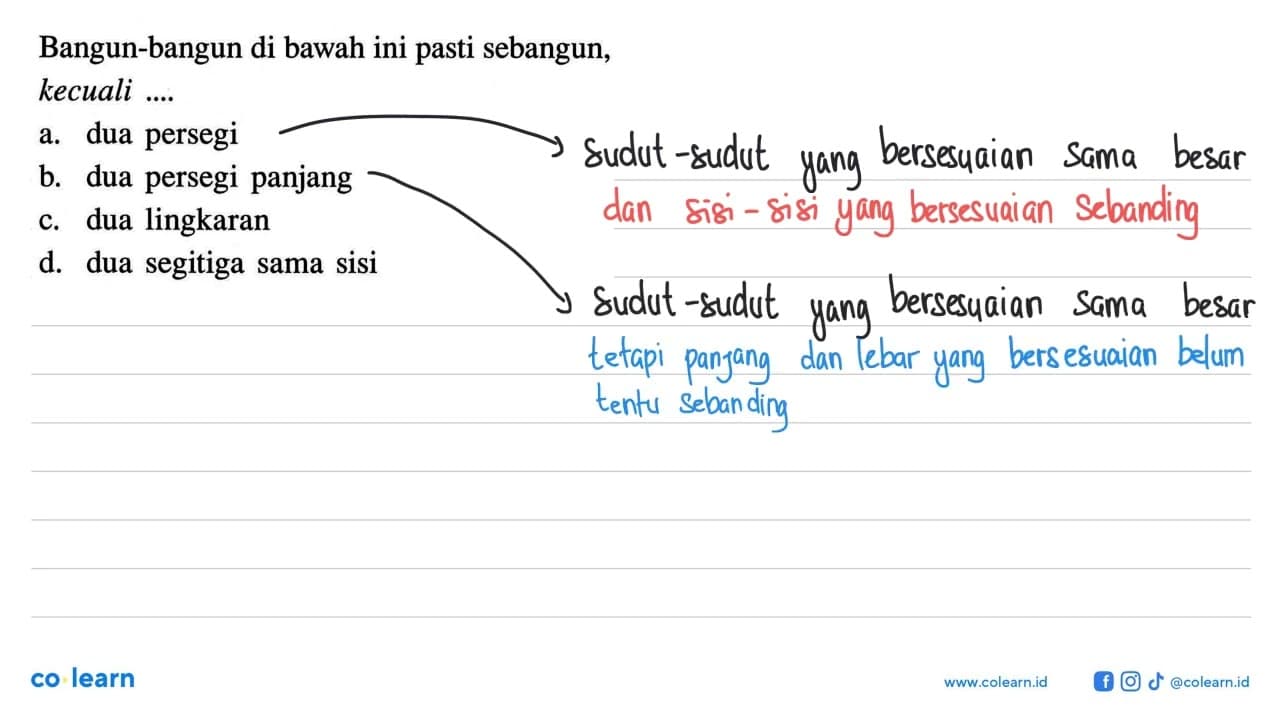 Bangun-bangun di bawah ini pasti sebangun,
kecuali ....
a. dua persegi
b. dua persegi panjang
c. dua lingkaran
d. dua segitiga sama sisi
sudut-sudut yang bersesuaian sama besar
dan sisi-sisi yang bersesuaian sebanding
sudut-sudut yang bersesuaian sama besar
tetapi panjang dan lebar yang bersesuaian belum
tentu sebanding
co learn
www.colearn.id
@colearn.id